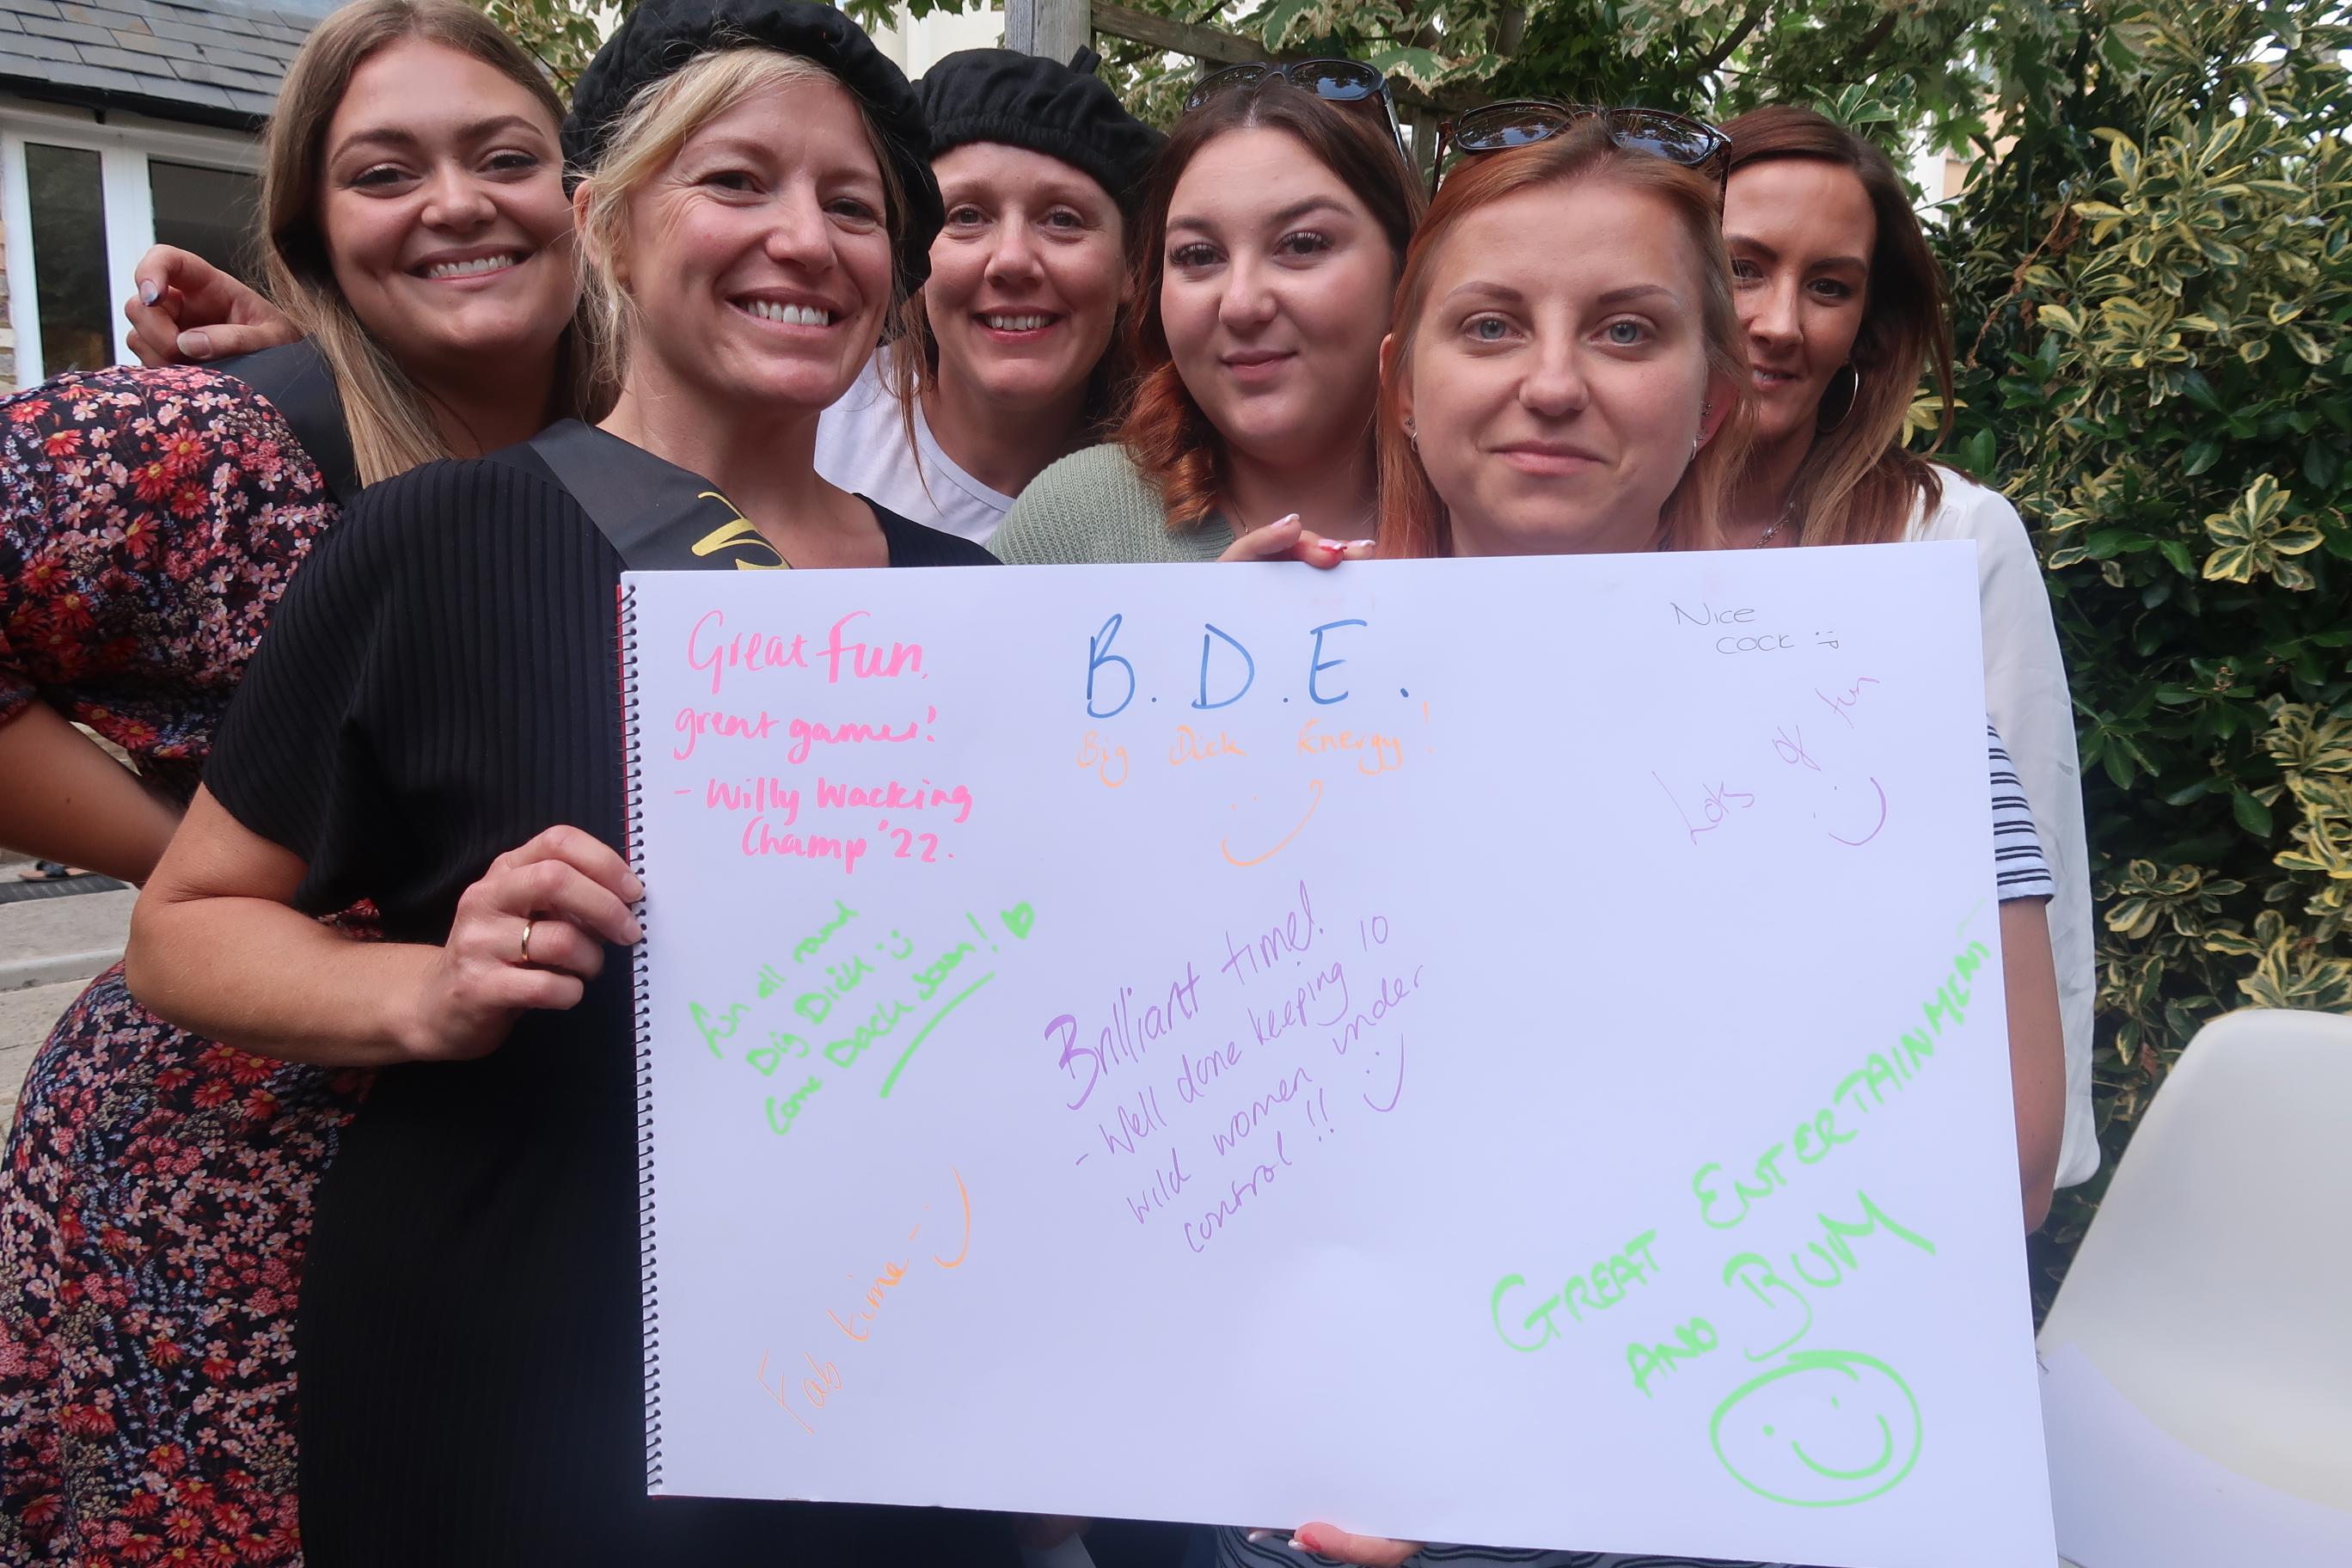 Great Fun,
great games!
- Willy Wacking
Champ '22.
B. D. E.
Big Dick Energy!
Nice
cock :P
Lots of fun
fun all round
Big Dick :)
Come Back soon!
Brilliant time!
- Well done keeping 10
wild women under
control!!
Fab time - :)
GREAT ENTERTAINMENT
AND BUM